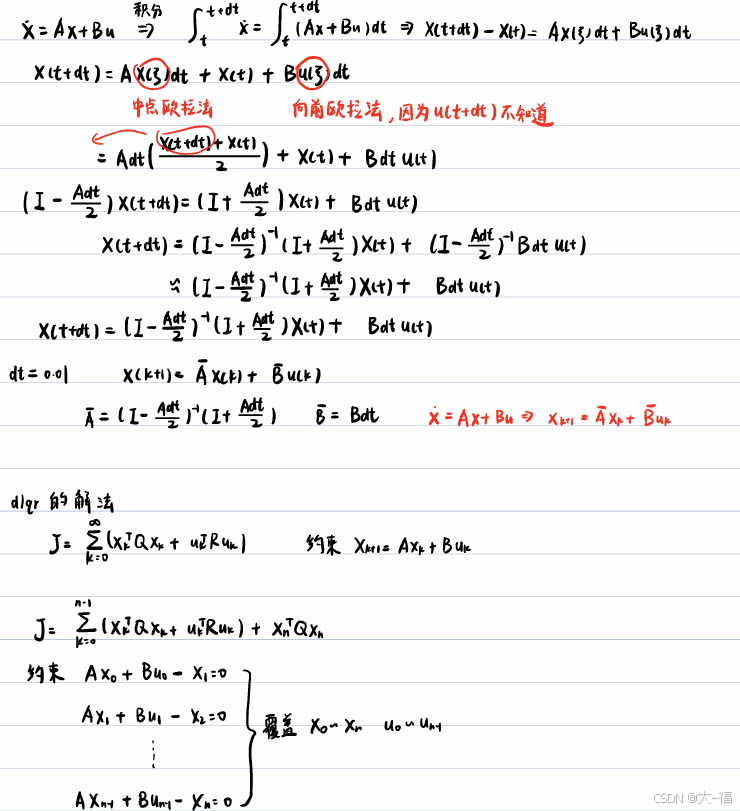 ẋ = Ax+Bu 积分 ⇒ ∫_t^{t+dt} ẋ = ∫_t^{t+dt} (Ax+Bu)dt ⇒ X(t+dt) - X(t) = AX(ξ)dt + Bu(ξ)dt
X(t+dt) = A X(ξ)dt + X(t) + B u(ξ)dt
中点欧拉法 向前欧拉法，因为u(t+dt)不知道
= Adt( (X(t+dt)+X(t))/2 ) + X(t) + Bdt u(t)
(I - Adt/2) X(t+dt) = (I + Adt/2) X(t) + Bdt u(t)
X(t+dt) = (I - Adt/2)^{-1} (I + Adt/2) X(t) + (I - Adt/2)^{-1} Bdt u(t)
≈ (I - Adt/2)^{-1} (I + Adt/2) X(t) + Bdt u(t)
X(t+dt) = (I - Adt/2)^{-1} (I + Adt/2) X(t) + Bdt u(t)
dt = 0.01 X(k+1) = Ā X(k) + B̄ u(k)
Ā = (I - Adt/2)^{-1} (I + Adt/2) B̄ = Bdt ẋ = Ax + Bu ⇒ x_{k+1} = Ā x_k + B̄ u_k
dlqr 的解法
J = ∑_{k=0}^{∞} (x_k^T Q x_k + u_k^T R u_k) 约束 x_{k+1} = A x_k + B u_k
J = ∑_{k=0}^{n-1} (x_k^T Q x_k + u_k^T R u_k) + x_n^T Q x_n
约束 A x_0 + B u_0 - x_1 = 0
A x_1 + B u_1 - x_2 = 0
覆盖 x_0 ~ x_n u_0 ~ u_{n-1}
⋮
A x_{n-1} + B u_{n-1} - x_n = 0
CSDN @大-福